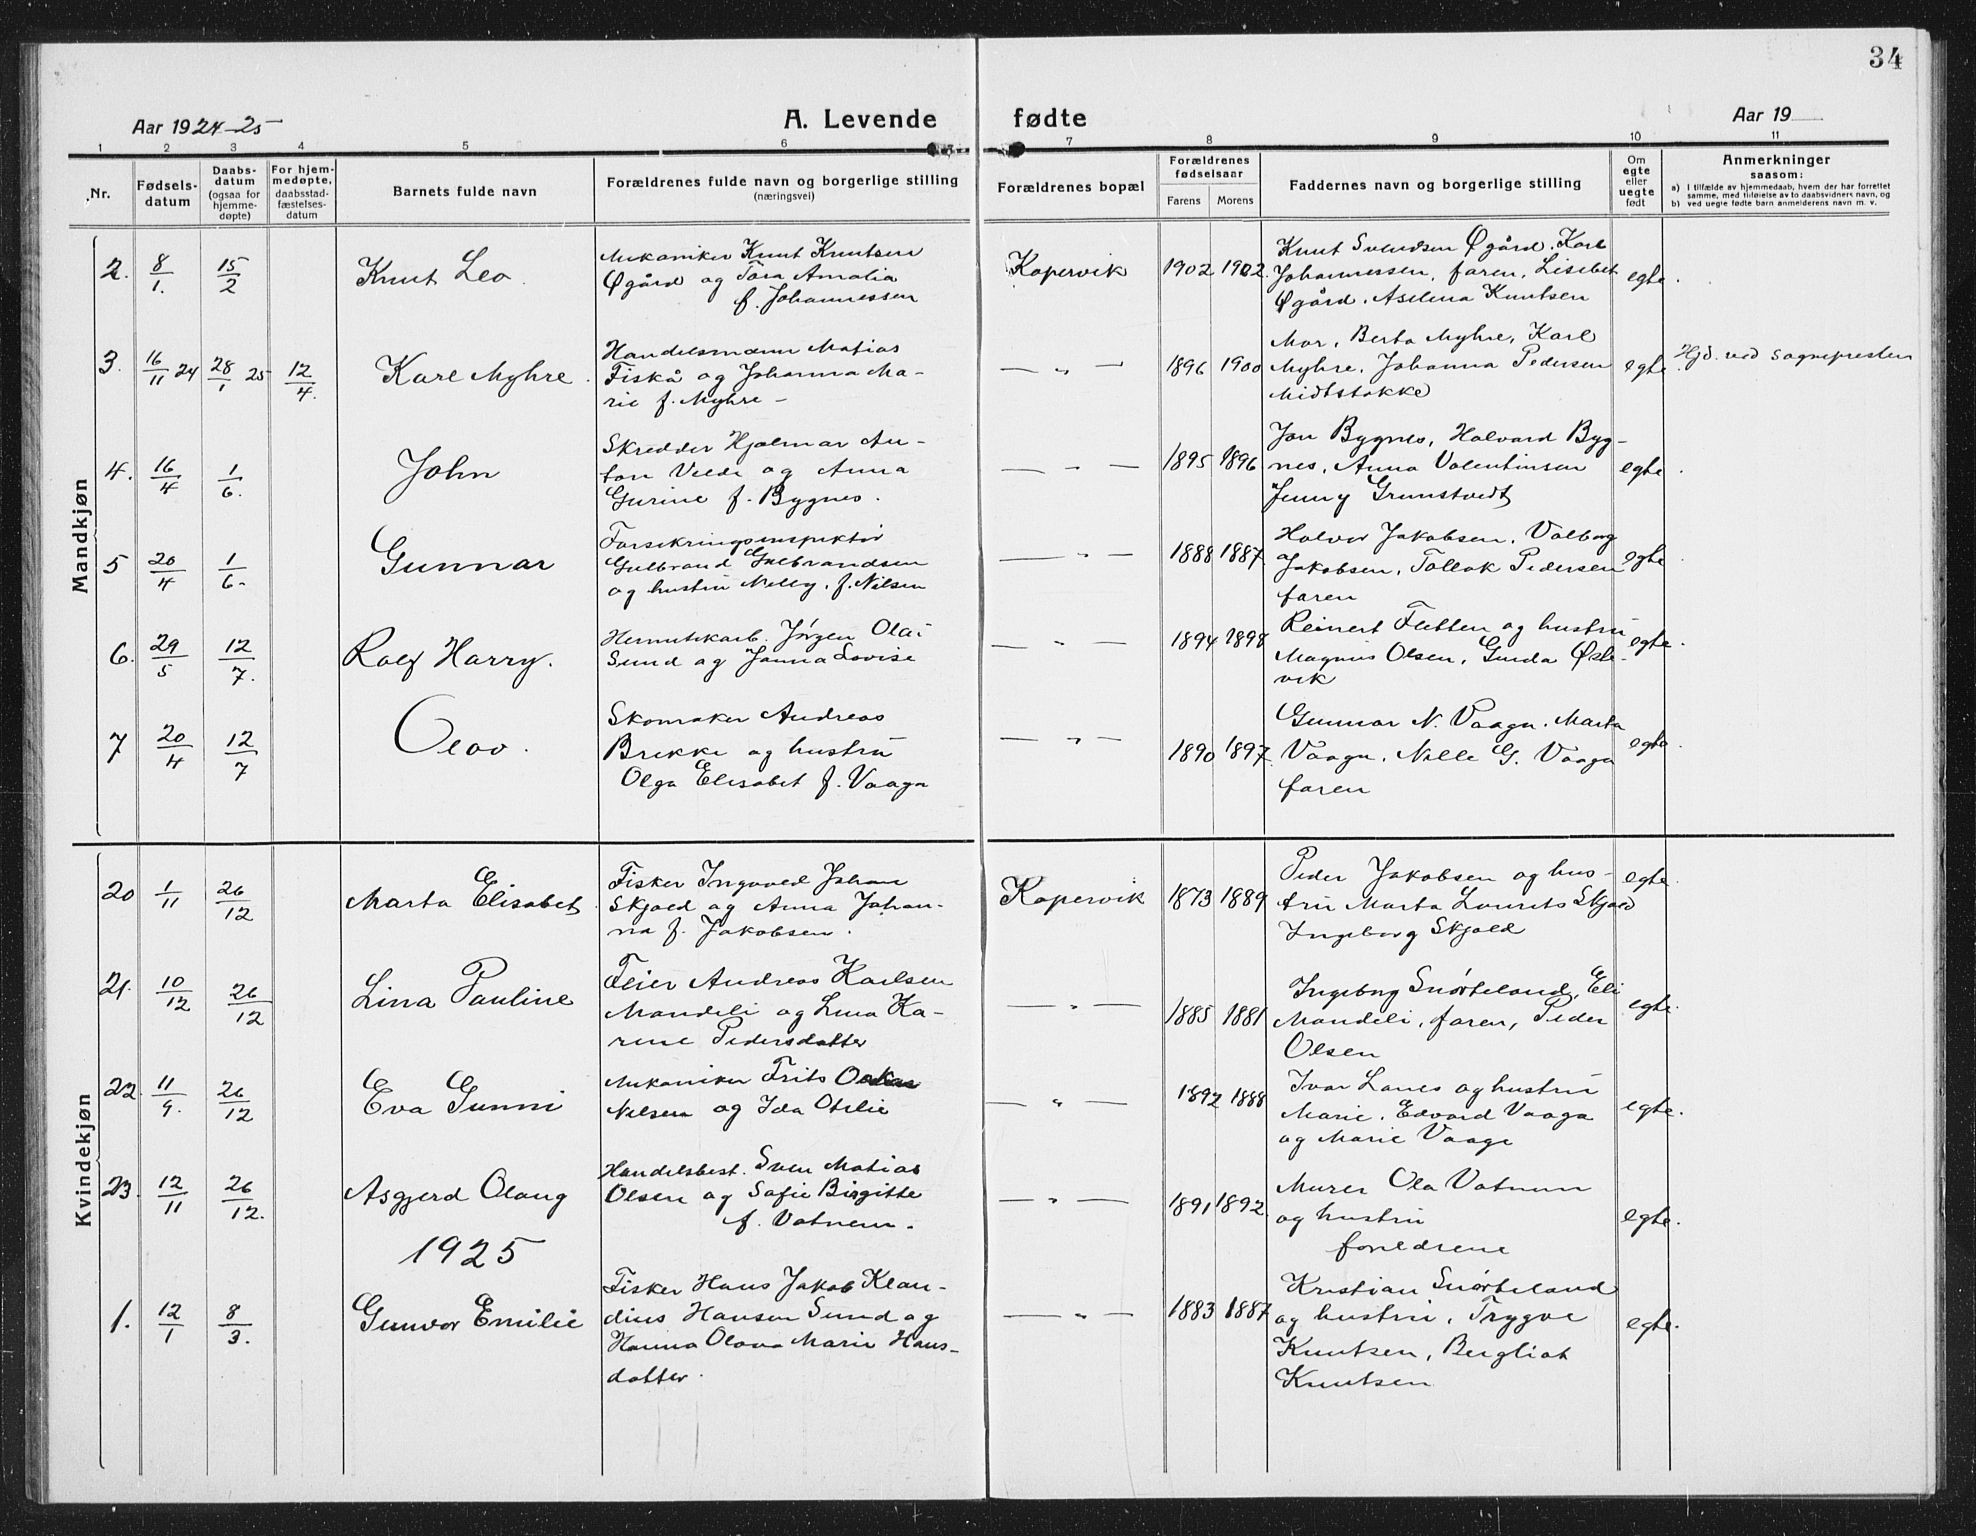 34
Aar 1924-25
A. Levende fødte
Aar 19
1 2 3 4 5 6 7 8 9 10 11
Nr.
Fødselsdatum
Daabsdatum (ogsaa for hjemmedøpte)
For hjemmedøpte, daabsstadfæstelsesdatum
Barnets fulde navn
Forældrenes fulde navn og borgerlige stilling
(næringsvei)
Forældrenes bopæl
Forældrenes fødselsaar
Farens Morens
Faddernes navn og borgerlige stilling
Om egte eller uegte født
Anmerkninger
saasom:
a) I tilfælde av hjemmedaab, hvem der har forrettet
samme, med tilføielse av to daabsvidners navn, og
b) ved uegte fødte barn anmelderens navn m. v.
Mandkjøn
2. 8/1. 15/2 Knut Leo.
Mekaniker Knut Knutsen
Øgård og Tora Amalia
f. Johannessen
Kopervik 1902 1902
Knut Svendsen Øgård. Karl
Johannessen, faren, Lisebet
Øgård. Aselena Knutsen
egte.
3. 16/11 24 28/1 25 12/4. Karl Myhre.
Handelsmann Matias
Fiskå og Johanna Ma-
rie f. Myhre -
— " — 1896 1900
Mor, Berta Myhre, Karl
Myhre, Johanna Pedersen
Midtstokke
egte.
Hjd. ved sognepresten
4. 16/4 1/6. John
Skredder Hjalmar An-
ton Velde og Anna
Gurine f. Bygnes.
— " — 1895 1896
Jon Bygnes, Halvard Byg-
nes, Anna Valentinsen
Jenny Grunstvedt
egte.
5 20/4 1/6. Gunnar
Forsikringsinspektör
Gulbrand Gulbrandsen
og hustru Nelly, f. Nilsen
— " — 1888 1887
Halvor Jakobsen, Valborg
Jakobsen, Tollak Pedersen
faren
egte
6. 29/5 12/7. Rolf Harry.
Hermetikarb. Jørgen Olai
Sund og Janna Lovise
— " — 1894 1898
Reinert Fletten og hustru
Magnus Olsen, Gurda Øste-
vik
egte.
7 20/4 12/7 Olav.
Skomaker Andreas
Brekke og hustru
Olga Elisabet f. Vaaga
— " — 1890 1897
Gunnar N. Vaaga. Marta
Vaaga, Nelle G. Vaaga
faren
egte.
Kvindekjøn
20 1/11 26/12 Marta Elisabet
Fisker Ingvald Johan
Skjold og Anna Johan-
na f. Jakobsen.
Kopervik 1873 1889
Peder Jakobsen og hus-
tru Marta Lourits Skjold
Ingeborg Skjold
egte.
21. 10/12 26/12 Lina Pauline
Feier Andreas Karlsen
Mandeli og Lina Ka-
rine Pedersdatter
— " — 1885 1881
Ingeborg Snørteland, Eli
Mandeli, faren, Peder
Olsen
egte.
22. 11/9. 26/12 Eva Gunni
Mekaniker Frits Oskar
Nilsen og Ida Otilie
— " — 1892 1888
Ivar Lanes og hustru
Marie, Edvard Vaaga
og Marie Vaage
egte.
23. 12/11 26/12. Asgjerd Olaug
Handelsbest. Sven Matias
Olsen og Sofie Birgitte
f. Vatnem.
— " — 1891 1892
Murer Ola Vatnem
og hustru
foreldrene
egte.
1925
1. 12/1 8/3. Gunvor Emilie
Fisker Hans Jakob Klau-
dius Hansen Sund og
Hanna Olava Marie Hans-
datter.
— " — 1883 1887
Kristian Snørteland
og hustru, Trygve
Knutsen, Bergliot
Knutsen
egte.